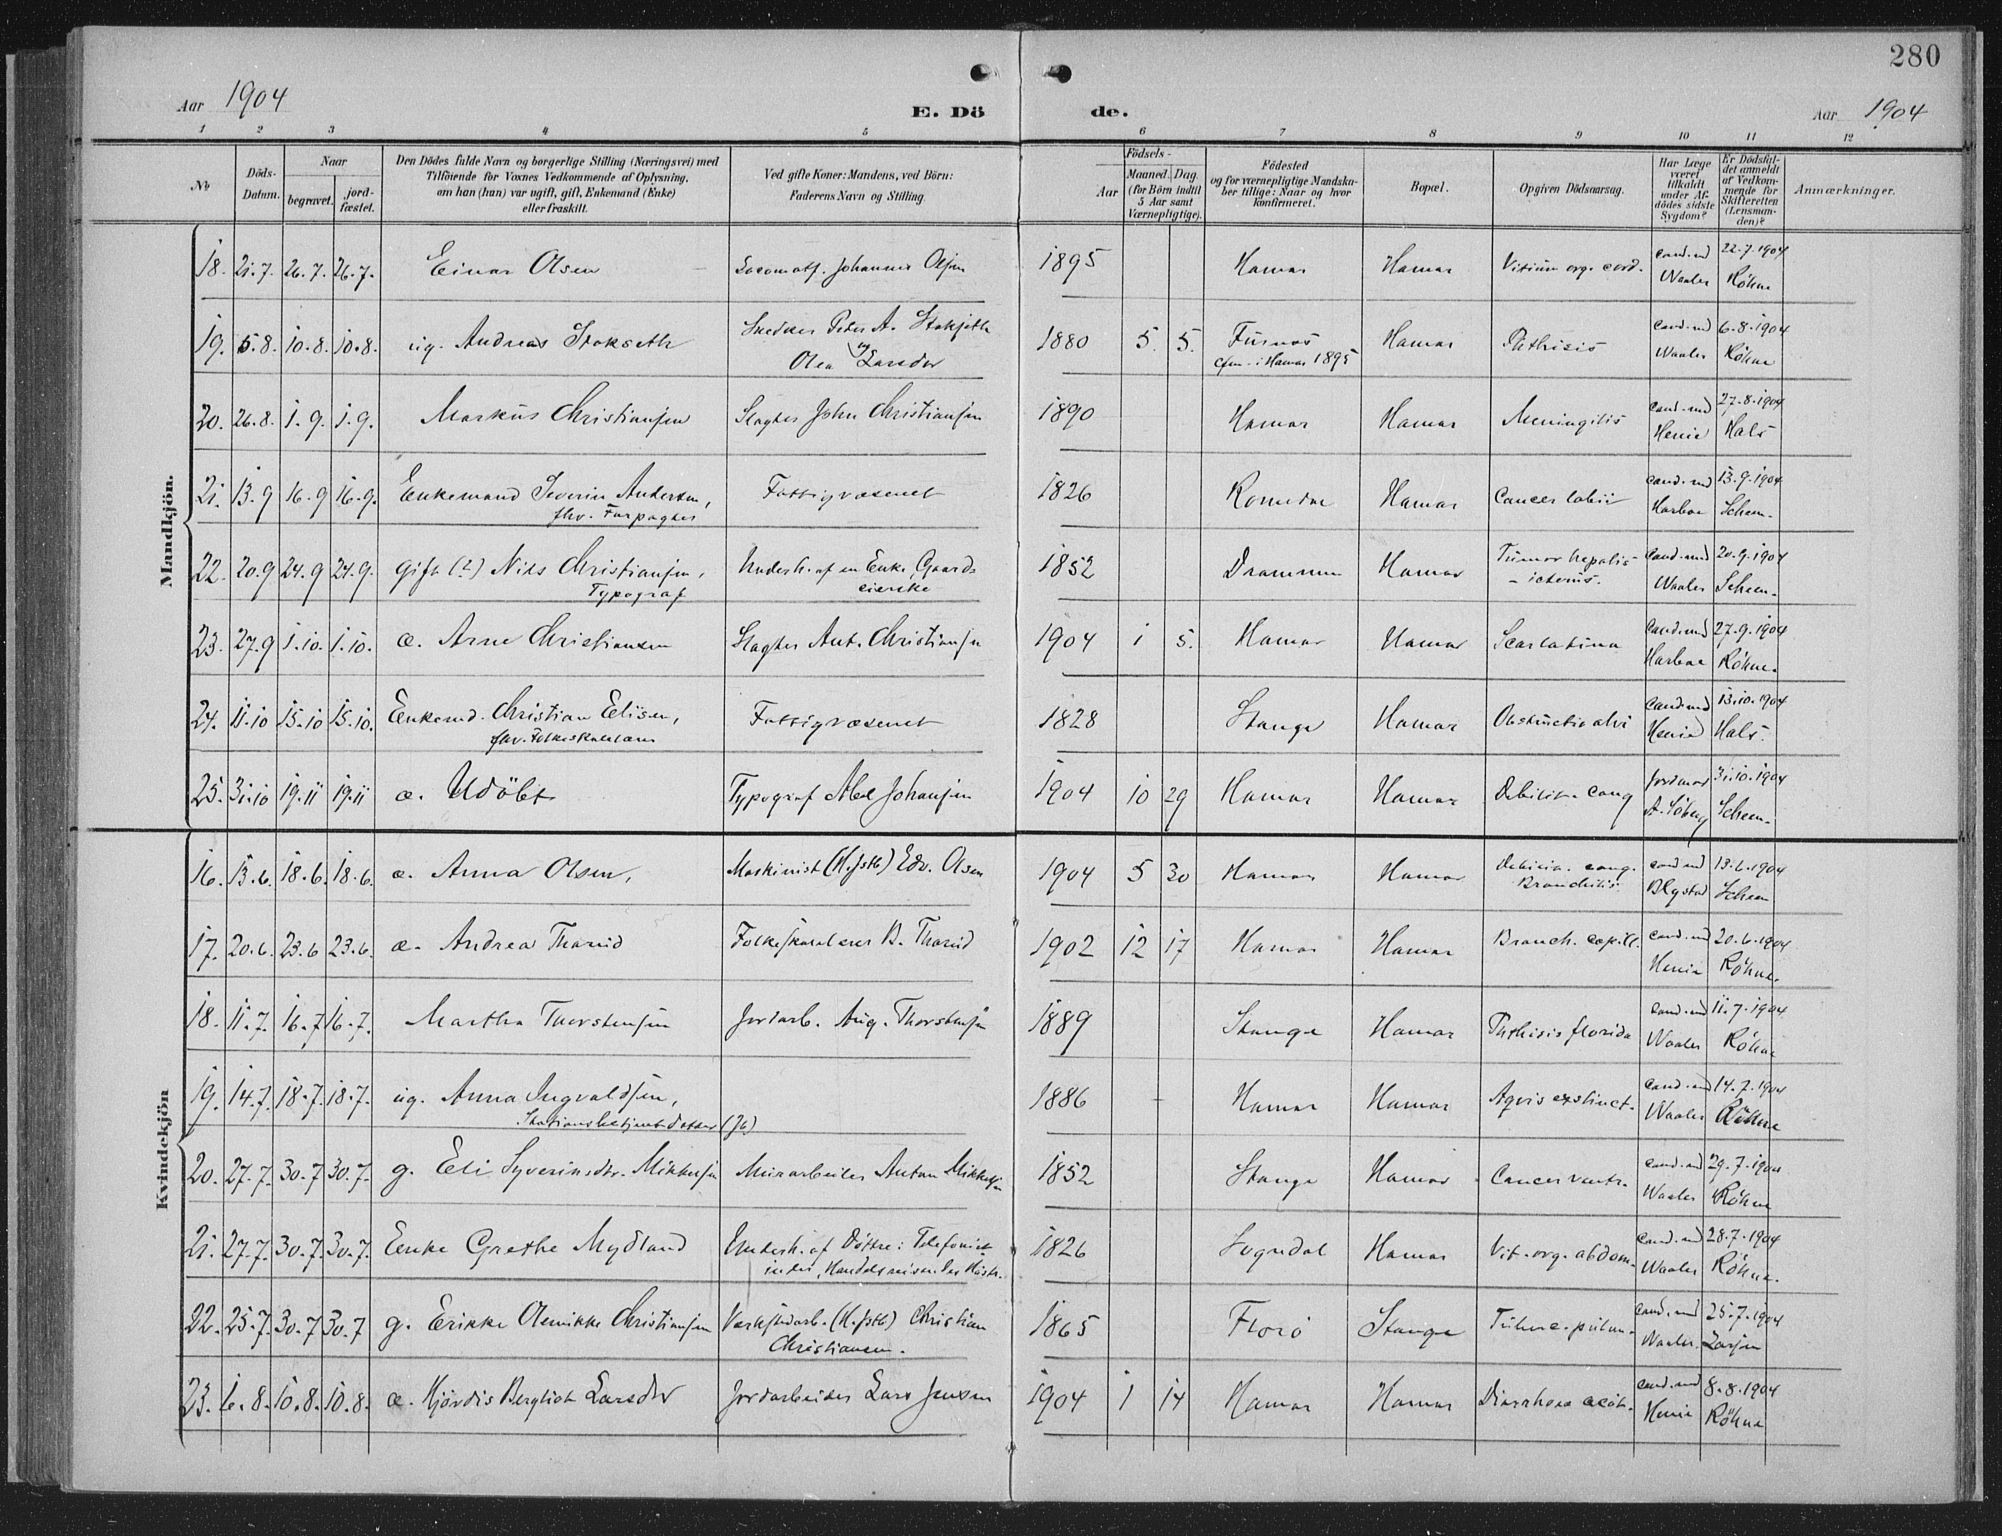 280
Aar 1904
E. Dö de.
Aar 1904
1 2 3 4 5 6 7 8 9 10 11 12
No
Döds-Datum.
Naar
begravet.
jord-fæstet.
Den Dödes fulde Navn og borgerlige Stilling (Næringsvei) med
Tilföiende for Voxnes Vedkommende af Oplysning,
om han (hun) var ugift, gift, Enkemand (Enke)
eller fraskilt.
Ved gifte Koner: Mandens, ved Börn:
Faderens Navn og Stilling.
Födsels-
Aar
Maaned. Dag
(for Börn indtil
5 Aar samt
Værnepligtige).
Födested
og for værnepligtige Mandska-
ber tillige: Naar og hvor
konfirmeret.
Bopæl.
Opgiven Dödsaarsag.
Har Læge
været
tilkaldt
under Af-
dödes sidste
Sygdom?
Er Dödsfal-
det anmeldt
af Vedkom-
mende for
Skifteretten
(Lensman-
den)?
Anmærkninger.
Mandkjön.
18. 21.7. 26.7. 26.7. Einar Olsen Locomotf. Johannes Olsen 1895 Hamar Hamar Vitium org. cord. cand. md Waaler 22.7.1904 Röhne
19. 5.8. 10.8. 10.8. ug. Andreas Stokseth Snedker Peter A. Stokseth
og Olea Larsdtr 1880 5. 5. Furnes
cfm. i Hamar 1895 Hamar Phthisis cand. md Waaler 6.8.1904 Röhne
20. 26.8. 1.9. 1.9. Markus Christiansen Slagter John Christiansen 1890 Hamar Hamar Meningitis cand. md Henie 27.8.1904 Hals
21. 13.9 16.9 16.9. Enkemand Severin Andersen,
fhv. Forpagter Fattigvæsenet 1826 Romedal Hamar Cancer labii cand. md Harboe 13.9.1904 Scheen.
22. 20.9 24.9 24.9. gift (?) Nils Christiansen,
Typograf Undersh. af en Enke, Gaard-
eierske 1852 Drammen Hamar Tumor hepatis
- icterus. cand. md Waaler 20.9.1904 Scheen.
23. 27.9 1.10. 1.10. æ. Arne Christiansen Slagter Ant. Christiansen 1904 1 5. Hamar Hamar Scarlatina Cand. md Harboe 27.9.1904 Röhne.
24. 11.10 15.10 15.10. Enkemd. Christian Ellisen,
fhv. Folkeskolelærer Fattigvæsenet 1828 Stange Hamar Obstructio alvi Cand. md Henie 13.10.1904 Hals.
25. 31.10 19.11 19.11 æ. Udöbt Typograf Abel Johansen 1904 10 29 Hamar Hamar Debilit. cong Jordmor A. Söberg 31.10.1904 Scheen.
Kvindekjön
16. 13.6. 18.6. 18.6. æ. Anna Olsen, Maskinist (H.fstb) Edv. Olsen 1904 5 30 Hamar Hamar cong.
Bronchitis cand md Blystad 13.6.1904 Scheen
17. 20.6. 23.6 23.6. æ. Andrea Tharud Folkeskolelærer B. Tharud 1902 12 17 Hamar Hamar Bronch. capill. cand. md Henie 20.6.1904 Röhne.
18. 11.7. 16.7 16.7. Martha Thorstensen Jordarb. Aug. Thorstensen 1889 Stange Hamar Phthisis florida cand. md Waaler 11.7.1904 Röhne
19. 14.7. 18.7. 18.7. ug. Anna Ingvaldsen,
Stationsbetjentdatter (Jb) 1886 - Hamar Hamar Aqvis exstinct. Cand. md Waaler 14.7.1904 Röhne
20. 27.7. 30.7 30.7. g. Eli Syverinsdtr. Mikkelsen Murarbeider Anton Mikkelsen 1852 Stange Hamar Cancer ventr. cand. md Waaler 29.7.1904 Röhne
21. 27.7. 30.7. 30.7. Enke Grethe Mydland Undersh. af Döttre: Telefonist-
inder, 1826 Sogndal Hamar Vit. org. abdom. Cand. md Waaler 28.7.1904 Röhne.
22. 25.7. 30.7 30.7 g. Erikke Olemikke Christiansen Værkstedarb. (H.fstb) Christian
Christiansen. 1865 Florö Stange Tuberc. pulm. cand. md Waaler. 25.7.1904 Larsen
23. 6.8. 10.8. 10.8. æ. Hjördis Bergliot Larsdtr Jordarbeider Lars Jensen 1904 1 14 Hamar Hamar Diarrhoea acut. cand. md Henie 8.8.1904 Röhne